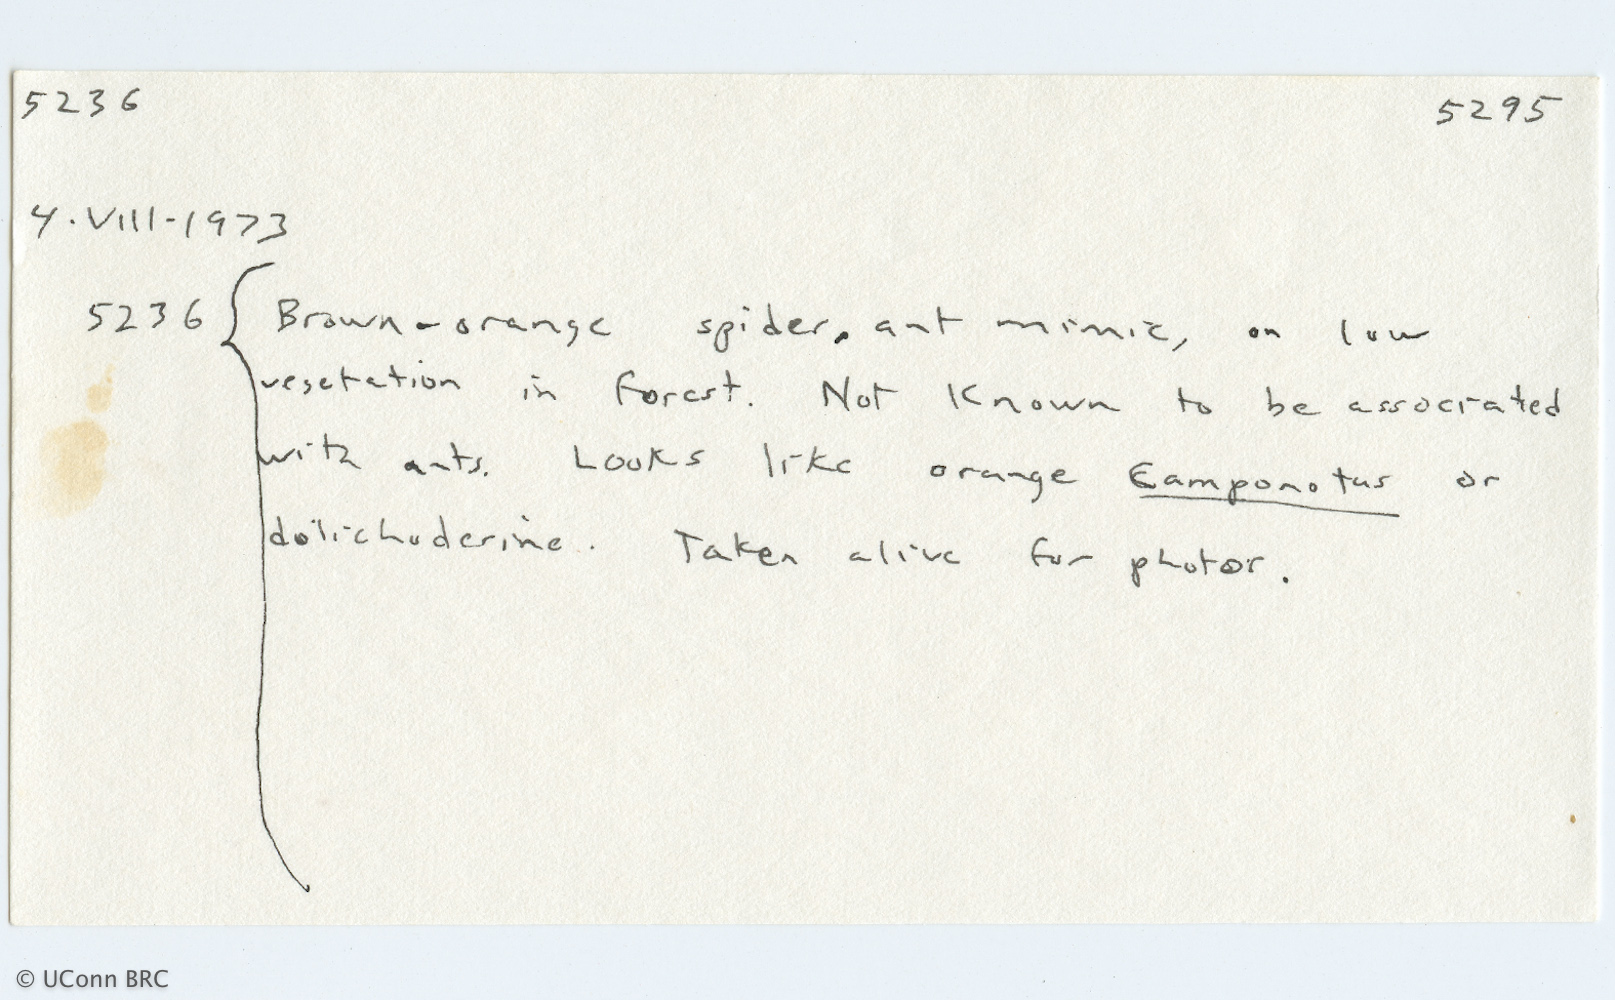 5236 5295
4.VIII-1973
5236 { Brown-orange spider, ant mimic, on low
vegetation in forest. Not Known to be associated
with ants. Looks like orange Camponotus or
dolichoderine. Taken alive for photos.
© UConn BRC